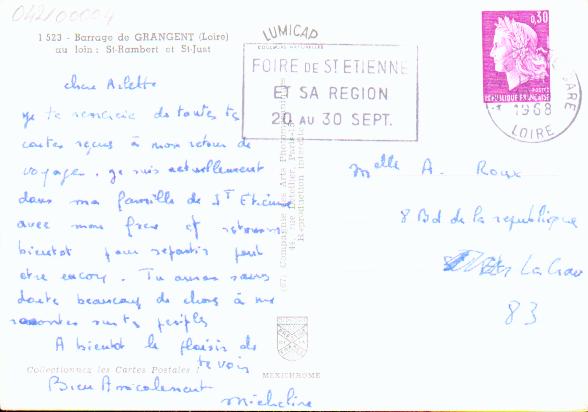 042/00004
1 523 - Barrage de GRANGENT (Loire)
au loin : St-Rambert et St-Just
LUMICAP
FOIRE DE ST ETIENNE
ET SA REGION
20 AU 30 SEPT.
0,30
POSTES
REPUBLIQUE FRANÇAISE
GARE
1968
LOIRE
chere Arlette
je te remercie de toutes tes
cartes reçus à mon retour de
voyage. je suis actuellement
dans ma famille de St Etienne
avec mon frere et retourne
bientot pour repartir peut
etre encore. Tu auras sans
doute beaucoup de choses à me
raconter sur tes periples
A bientot le plaisir de
te voir
Bien Amicalement
Micheline
Melle A. Roux
8 Bd de la republique
La Crau
83
Reproduction interdite
Collectionnez les Cartes Postales !
MEXICHROME